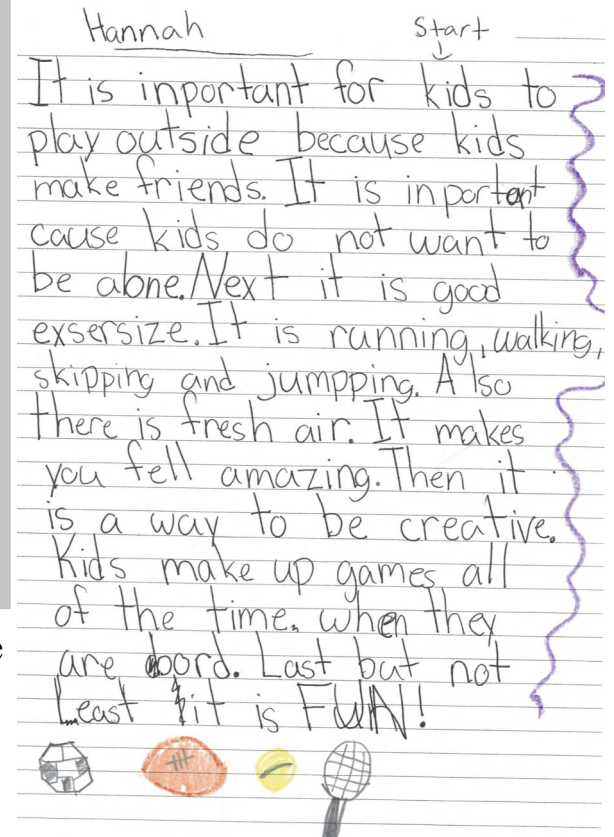 Hannah
Start
It is inportant for kids to
play outside because kids
make friends. It is inportent
cause kids do not want to
be alone. Next it is good
exsersize. It is running, walking,
skipping and jumpping. Also
there is fresh air. It makes
you fell amazing. Then it
is a way to be creative.
Kids make up games all
of the time. when they
are bord. Last but not
Least it is FUN!